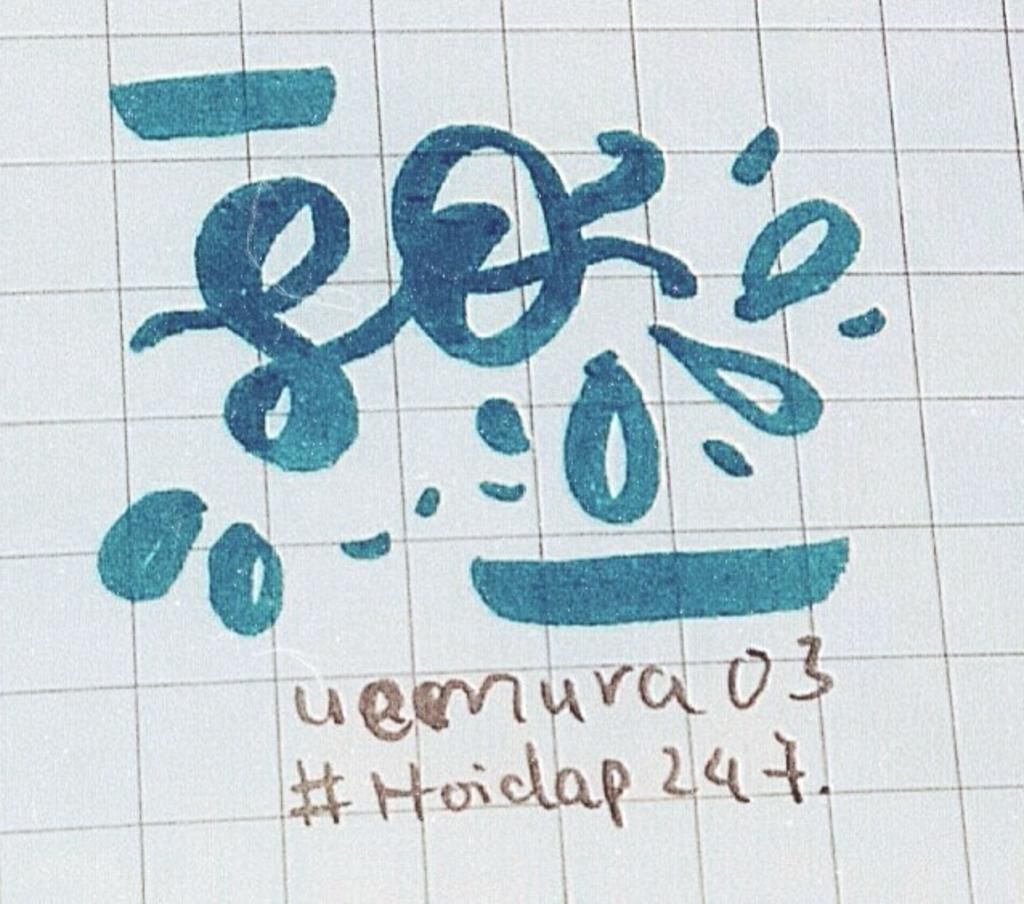 uemura 03
#Hoidap247.